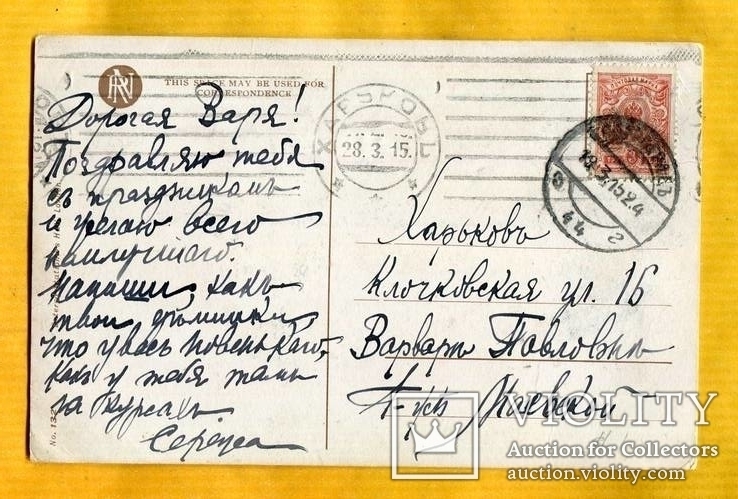 RN
THIS SPACE MAY BE USED FOR
CORRESPONDENCE
Дорогая Варя!
Поздравляю тебя
съ праздникомъ
и желаю всего
наилучшаго.
Напиши, какъ
твои
что у васъ новенькаго,
какъ у тебя тамъ
на курсахъ.
Сережа
ХАРЬКОВЪ
28.3.15.
18.3.1524
Харьковъ
Клочковская ул. 16
Варваръ Павловнъ
No. 132
VIOLITY
Auction for Collectors
auction.violity.com